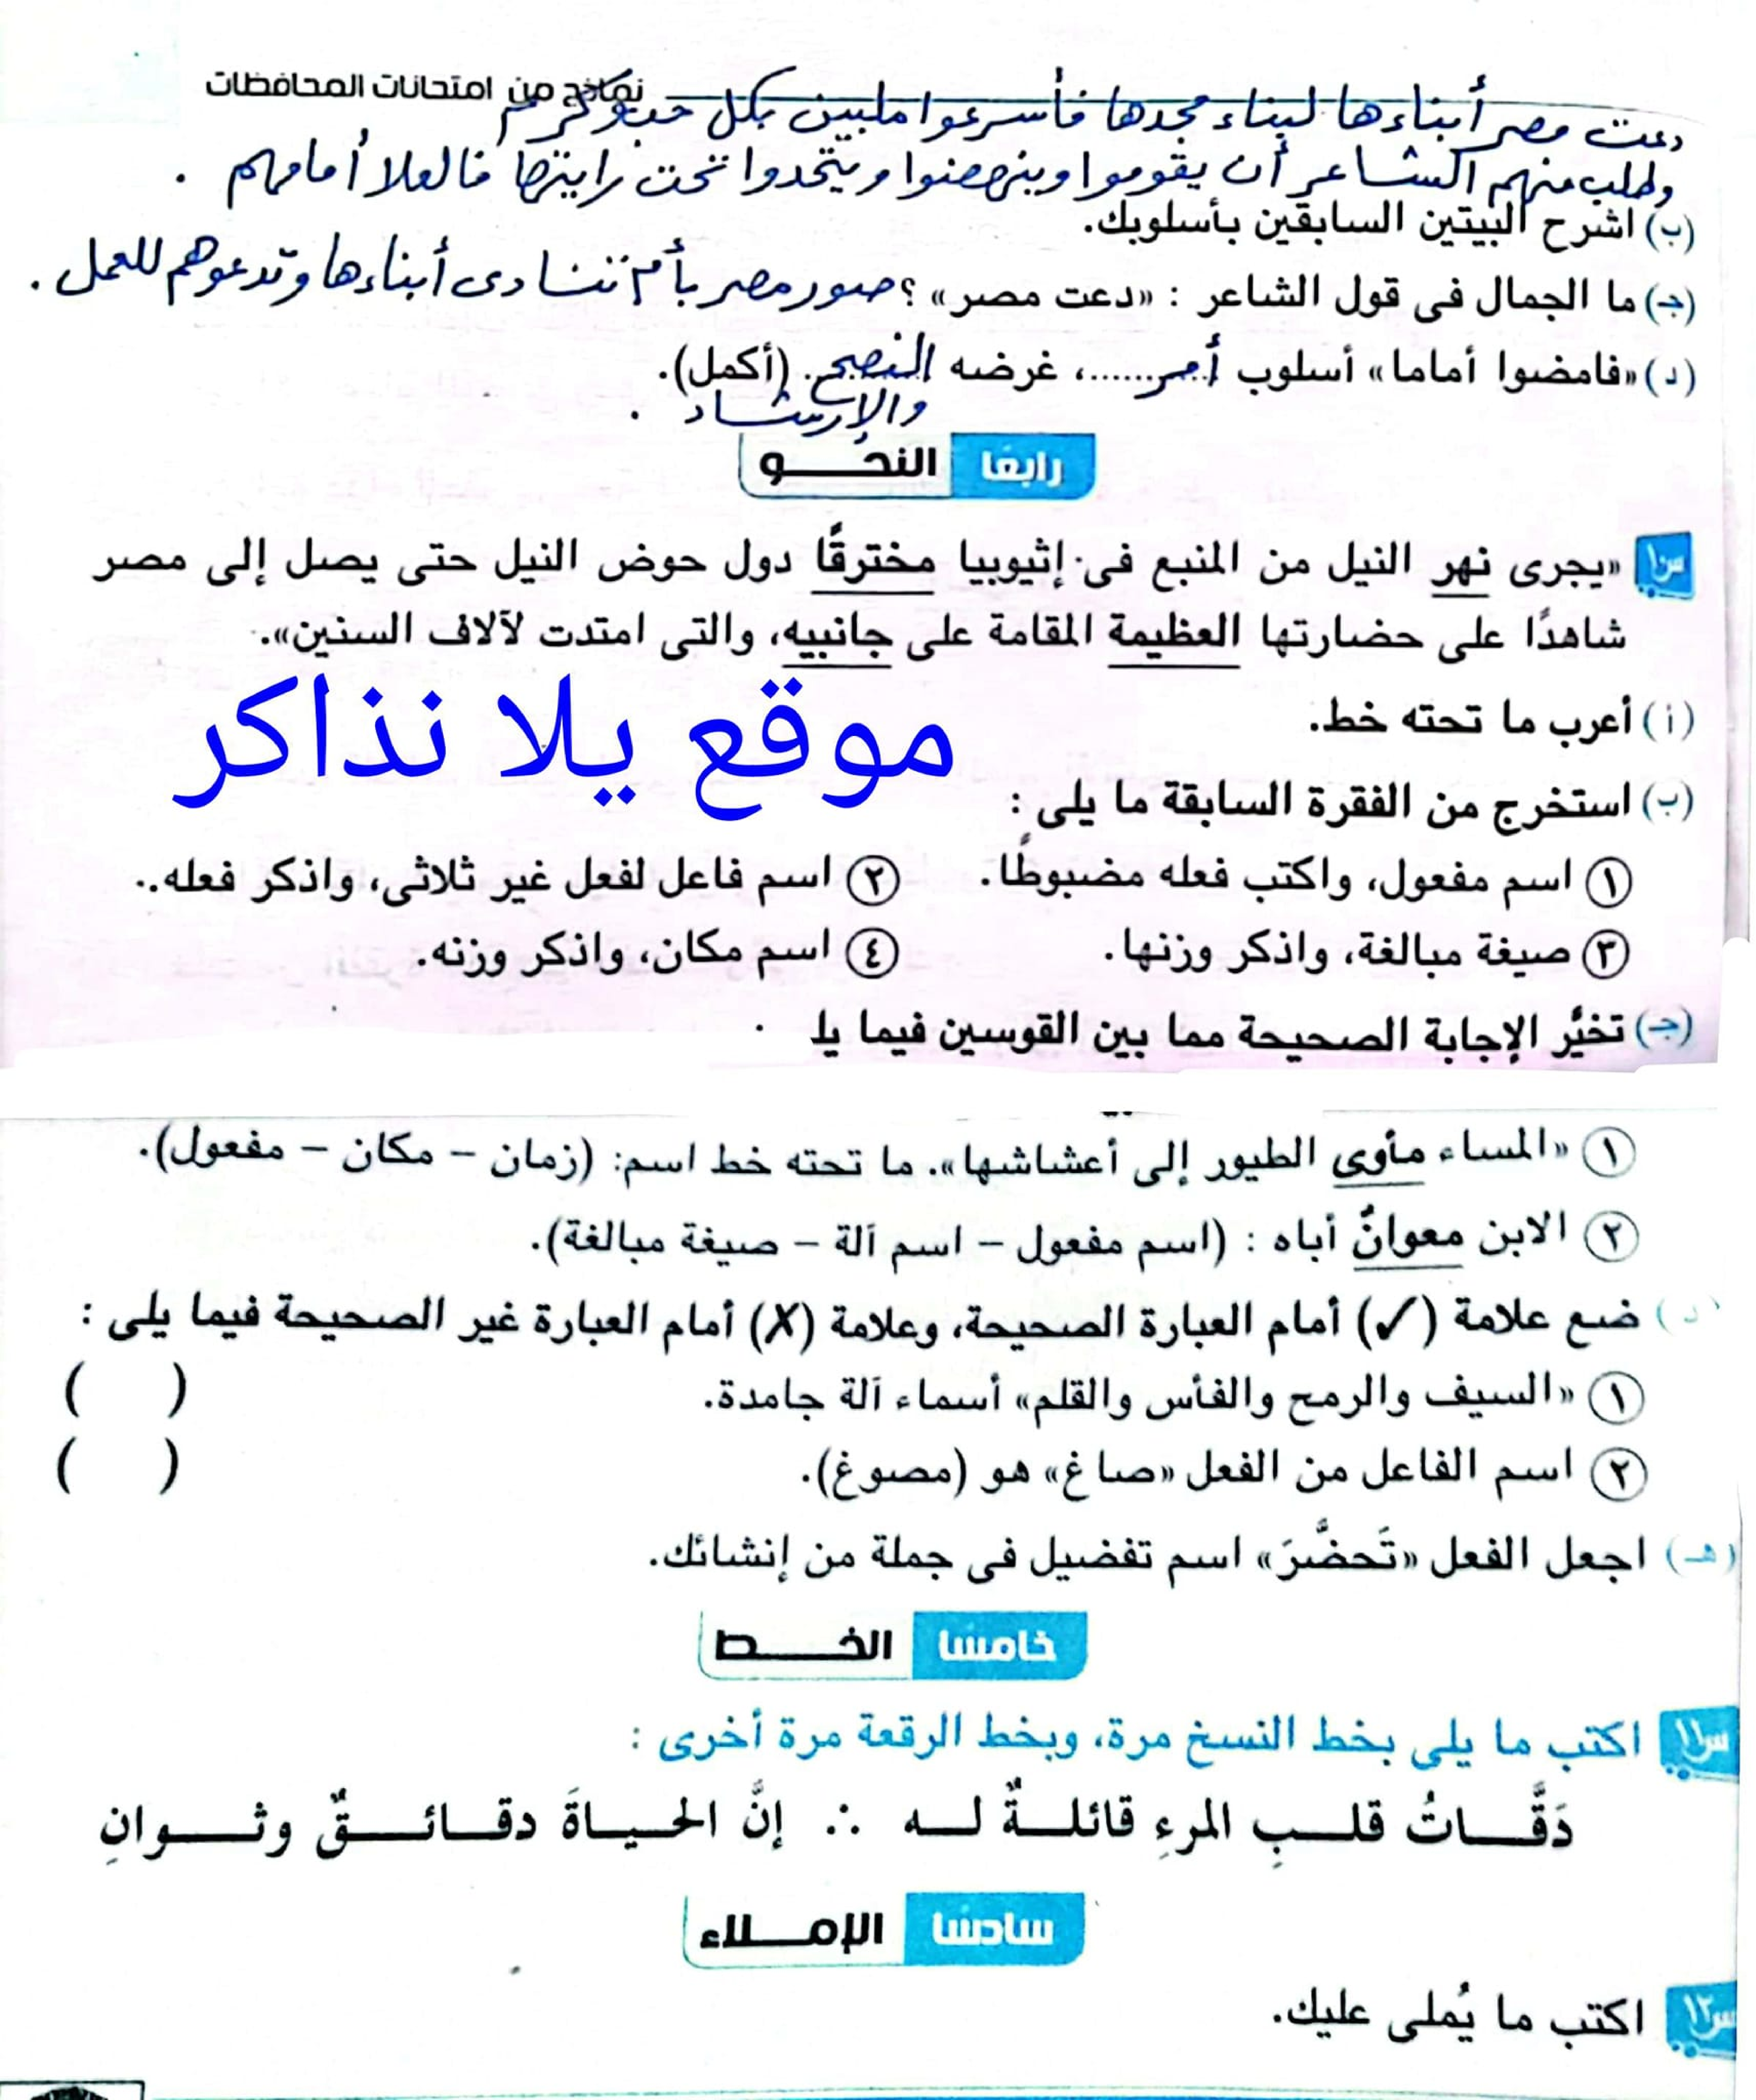 نماذج من امتحانات المحافظات
دعت مصر أبناءها لبناء مجدها فأسرعوا ملبين بكل حب وكرم
وطلب منهم الشاعر أن يقوموا وينهضوا ويتحدوا تحت رايتها فالعلا أمامهم .
(ب) اشرح البيتين السابقين بأسلوبك.
(جـ) ما الجمال فى قول الشاعر : «دعت مصر» ؟ صور مصر بأم تنادى أبناءها وتدعوهم للعمل .
(د) «فامضوا أماما» أسلوب أمر......، غرضه النصح (أكمل).
والإرشاد .
رابعًا النحـــو
س١٠ «يجرى نهر النيل من المنبع فى إثيوبيا مخترقًا دول حوض النيل حتى يصل إلى مصر
شاهدًا على حضارتها العظيمة المقامة على جانبيه، والتى امتدت لآلاف السنين».
(أ) أعرب ما تحته خط.
موقع يلا نذاكر
(ب) استخرج من الفقرة السابقة ما يلى :
١ اسم مفعول، واكتب فعله مضبوطًا. ٢ اسم فاعل لفعل غير ثلاثى، واذكر فعله.
٣ صيغة مبالغة، واذكر وزنها. ٤ اسم مكان، واذكر وزنه.
(جـ) تخيَّر الإجابة الصحيحة مما بين القوسين فيما يلـ
١ «المساء مأوى الطيور إلى أعشاشها». ما تحته خط اسم: (زمان – مكان – مفعول).
٢ الابن معوانٌ أباه : (اسم مفعول – اسم آلة – صيغة مبالغة).
(د) ضع علامة (✓) أمام العبارة الصحيحة، وعلامة (✗) أمام العبارة غير الصحيحة فيما يلى :
١ «السيف والرمح والفأس والقلم» أسماء آلة جامدة. ( )
٢ اسم الفاعل من الفعل «صاغ» هو (مصوغ). ( )
(هـ) اجعل الفعل «تَحضَّرَ» اسم تفضيل فى جملة من إنشائك.
خامسًا الخـــط
س١١ اكتب ما يلى بخط النسخ مرة، وبخط الرقعة مرة أخرى :
دَقَّـــاتُ قلـــبِ المرءِ قائلـــةٌ لـــه ∴ إنَّ الحـيـــاةَ دقـــائـــقٌ وثـــوانِ
سادسًا الإمـــلاء
س١٢ اكتب ما يُملى عليك.